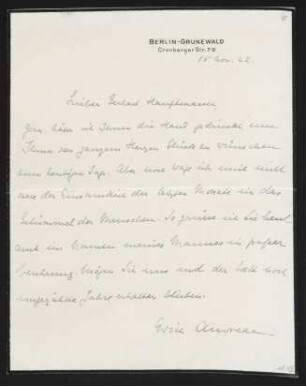 BERLIN-GRUNEWALD
Cronberger Str. 7-9
15 Nov. 42.
Lieber Gerhart Hauptmann
Gern käm ich Ihnen die Hand gedrückt um
Ihnen von ganzem Herzen Glück zu wünschen
zum heutigen Tage. Aber noch wage ich mich nicht
aus der Einsamkeit der letzten Monate in das
Getümmel der Menschen. So grüsse ich Sie heut
auch im Namen meines Mannes in grosser
Verehrung. Mögen Sie uns und der Welt noch
ungezählte Jahre erhalten bleiben.
Edith Andreae